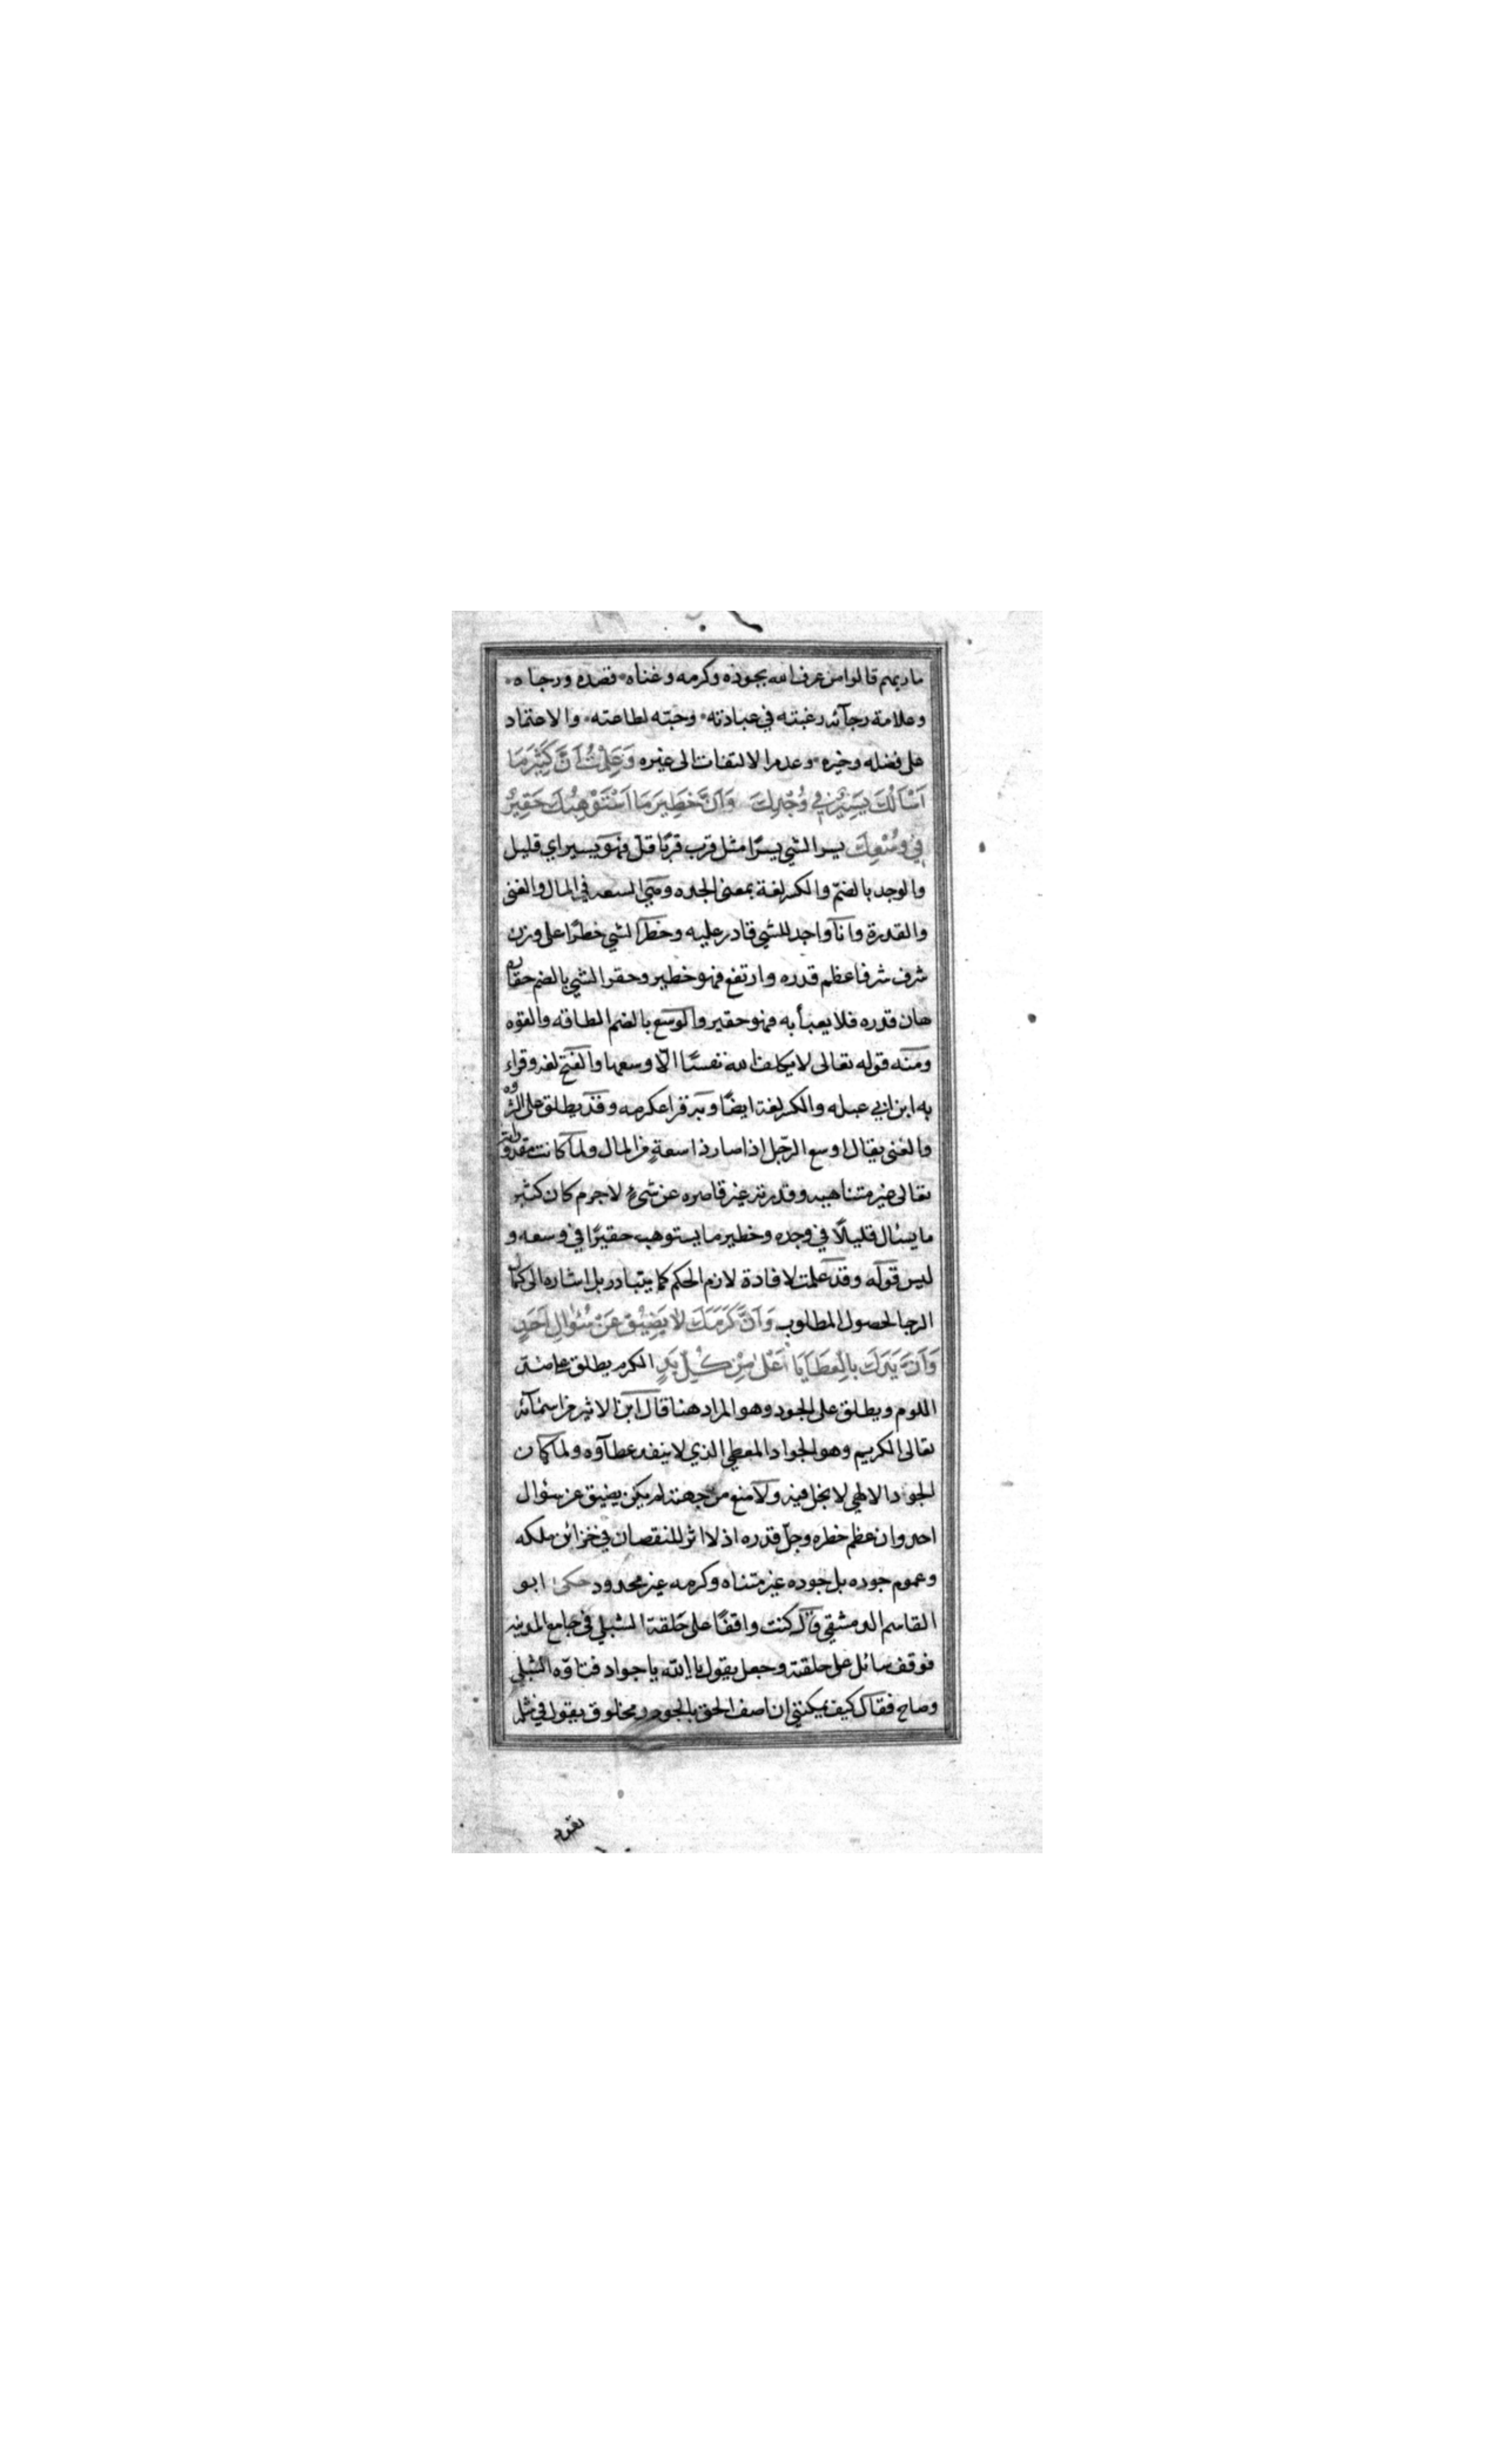 ماربهم قالوا من عرف الله بجوده وكرمه وغناه قصده ورجاه
وعلامة رجآئه رغبته في عبادته وحبّه لطاعته والاعتماد
على فضله وخيره وعدم الالتفات الى غيره وَعَلِمْتُ اَنَّ كَثِيْرَ مَا
اَسْأَلُكَ يَسِيْرٌ فِي وُجْدِكَ وَاَنَّ خَطِيرَ مَا اَسْتَوْهِبُكَ حَقِيرٌ
فِي وُسْعِكَ يسر الشي يسرًا مثل قرب قربًا قل فهو يسير اي قليل
والوجد بالضمّ والكسر لغة بمعنى الجده وهي السعه في المال والغنى
والقدرة وانآ واجد للشي قادر عليه وخطر الشي خطرًا على وزن
شرف شرفا عظم قدره وارتفع فهو خطير وحقر الشي بالضم حقاره
هان قدره فلا يعبأ به فهو حقير والوسع بالضم الطاقه والقوه
ومنه قوله تعالى لا يكلف الله نفسًا الّا وسعها والفتح لغه وقراء
به ابن ابي عبله والكسر لغة ايضًا وبه قرا عكرمه وقد يطلق على الثروه
والغنى يقال اوسع الرجل اذا صار ذا سعةٍ من المال ولما كانت مقدوراته
تعالى غير متناهيه وقدرته غير قاصره عن شيءٍ لاجرم كان كثير
ما يسئال قليلًا في وجده وخطير ما يستوهب حقيرًا في وسعه و
ليس قوله وقد علمت لافادة لازم الحكم كما يتبادر بل اشاره الى كمال
الرجا لحصول المطلوب وَاَنَّ كَرَمَكَ لَا يَضِيْقُ عَنْ سُئُوالِ اَحَدٍ
وَاَنَّ يَدَكَ بِالْعَطَايَا اَعْلٰى مِنْ كُلِّ يَدٍ الكرم يطلق على ضدّ
اللوم ويطلق على الجود وهو المراد هنا قال ابن الاثير من اسمآئه
تعالى الكريم وهو الجواد المعطي الذي لا ينفد عطآوه ولما كان
الجود الالهي لا بخل فيه ولا منع من جهته لم يكن يضيق عن سئوال
احد وان عظم خطره وجلّ قدره اذ لا اثر للنقصان في خزائن ملكه
وعموم جوده بل جوده غير متناه وكرمه غير محدود حكى ابو
القاسم الدمشقي قال كنت واقفًا على حلقة الشبلي في جامع المدينه
فوقف سائل على حلقته وجعل يقول يا الله يا جواد فتاوّه الشبلي
وصاح فقال كيف يمكنني ان اصف الحق بالجود ومخلوق يقول في مثله